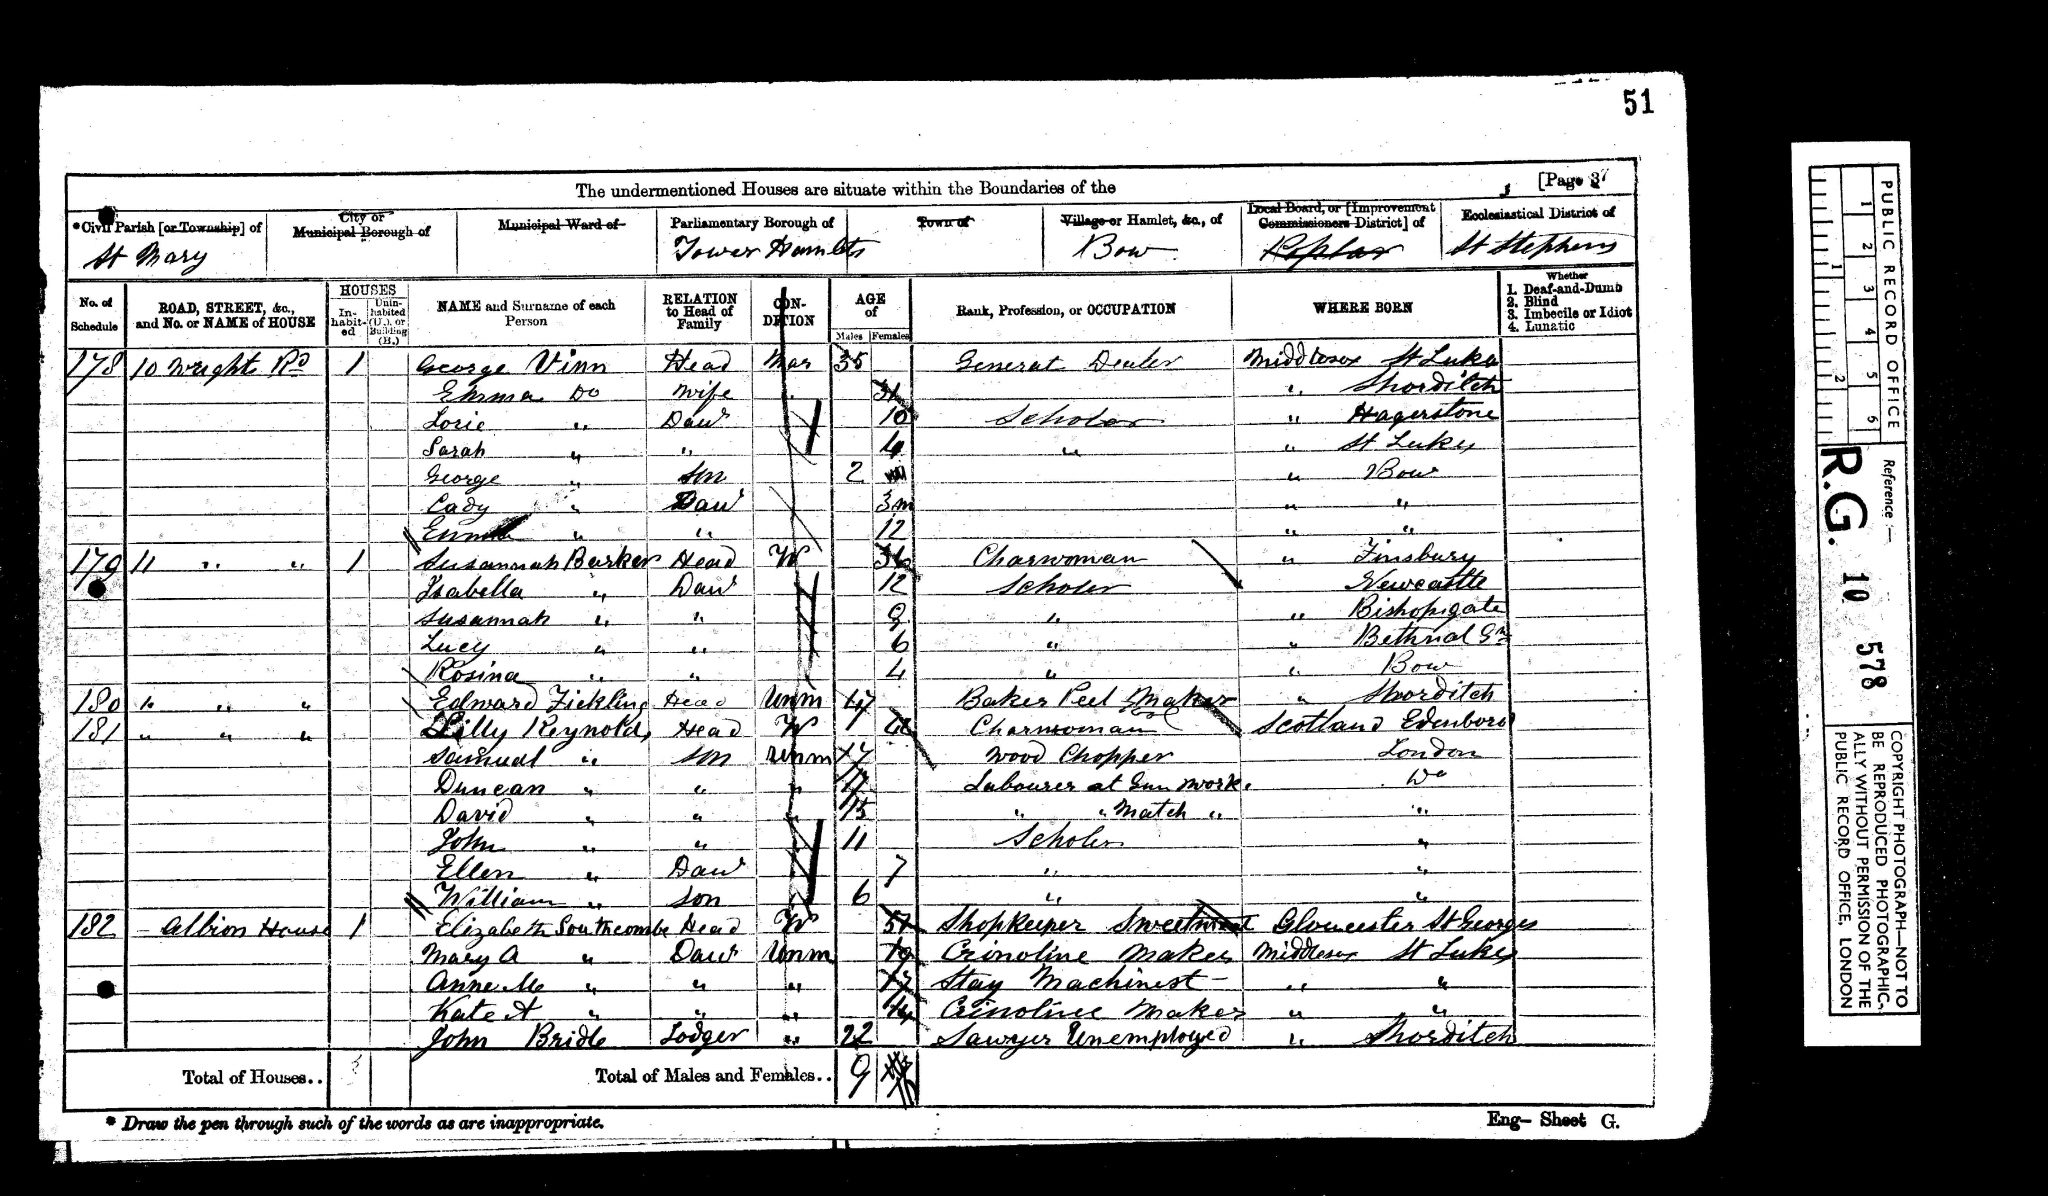 51
The undermentioned Houses are situate within the Boundaries of the [Page 37
*Civil Parish [or Township] of
City or Municipal Borough of
Municipal Ward of
Parliamentary Borough of
Town of
Village or Hamlet, &c., of
Local Board, or [Improvement Commissioners District] of
Ecclesiastical District of
St Mary Tower Hamlets Bow Poplar St Stephens
No. of Schedule
ROAD, STREET, &c., and No. or NAME of HOUSE
HOUSES
Inhabited
Uninhabited (U.), or Building (B.)
NAME and Surname of each Person
RELATION to Head of Family
CONDITION
AGE of
Males Females
Rank, Profession, or OCCUPATION
WHERE BORN
Whether
1. Deaf-and-Dumb
2. Blind
3. Imbecile or Idiot
4. Lunatic
178 10 Wright Rd 1 George Vinn Head Mar 35 General Dealer Middlesex St Lukes
Emma Do Wife 31 " Shorditch
" Daur 10 Scholar " Hagerstone
Sarah " " " " St Lukes
George " Son 2 " Bow
" Daur 3m " "
Emma " " 12 " "
179 11 " " 1 Susannah Barker Head W 36 Charwoman " Finsbury
Isabella " Daur 12 Scholar Newcastle
Susannah " " 9 " " Bishopsgate
Lucy " " 6 " " Bethnal Gn
Rosina " " 4 " " Bow
180 " " " Edward Fickling Head Unm 47 Baker Peel Maker " Shorditch
181 " " " Lilly Reynolds Head W Charwoman Scotland Edenboro
Samuel " Son Unm Wood Chopper London
Duncan " " " 17 Labourer at Gun Works Do
David " " 15 " " Match " "
John " " 11 Scholar "
Ellen " Daur 7 " "
William " Son 6 " "
182 - Albion House 1 Elizabeth Southcombe Head W 51 Shopkeeper Sweetmeat Gloucester St Georges
Mary A " Daur Unm 19 Crinoline Maker Middlesex St Lukes
Anne M " " " 17 Stay Machinest - " "
Kate A " " " 14 Crinoline Maker " "
John Bridle Lodger " 22 Sawyer Unemployed " Shorditch
Total of Houses.. 3 Total of Males and Females.. 9
* Draw the pen through such of the words as are inappropriate.
Eng- Sheet G.
PUBLIC RECORD OFFICE
1 2 3 4 5 6
1 2
Reference :-
R.G. 10 578
COPYRIGHT PHOTOGRAPH—NOT TO
BE REPRODUCED PHOTOGRAPHIC-
ALLY WITHOUT PERMISSION OF THE
PUBLIC RECORD OFFICE, LONDON